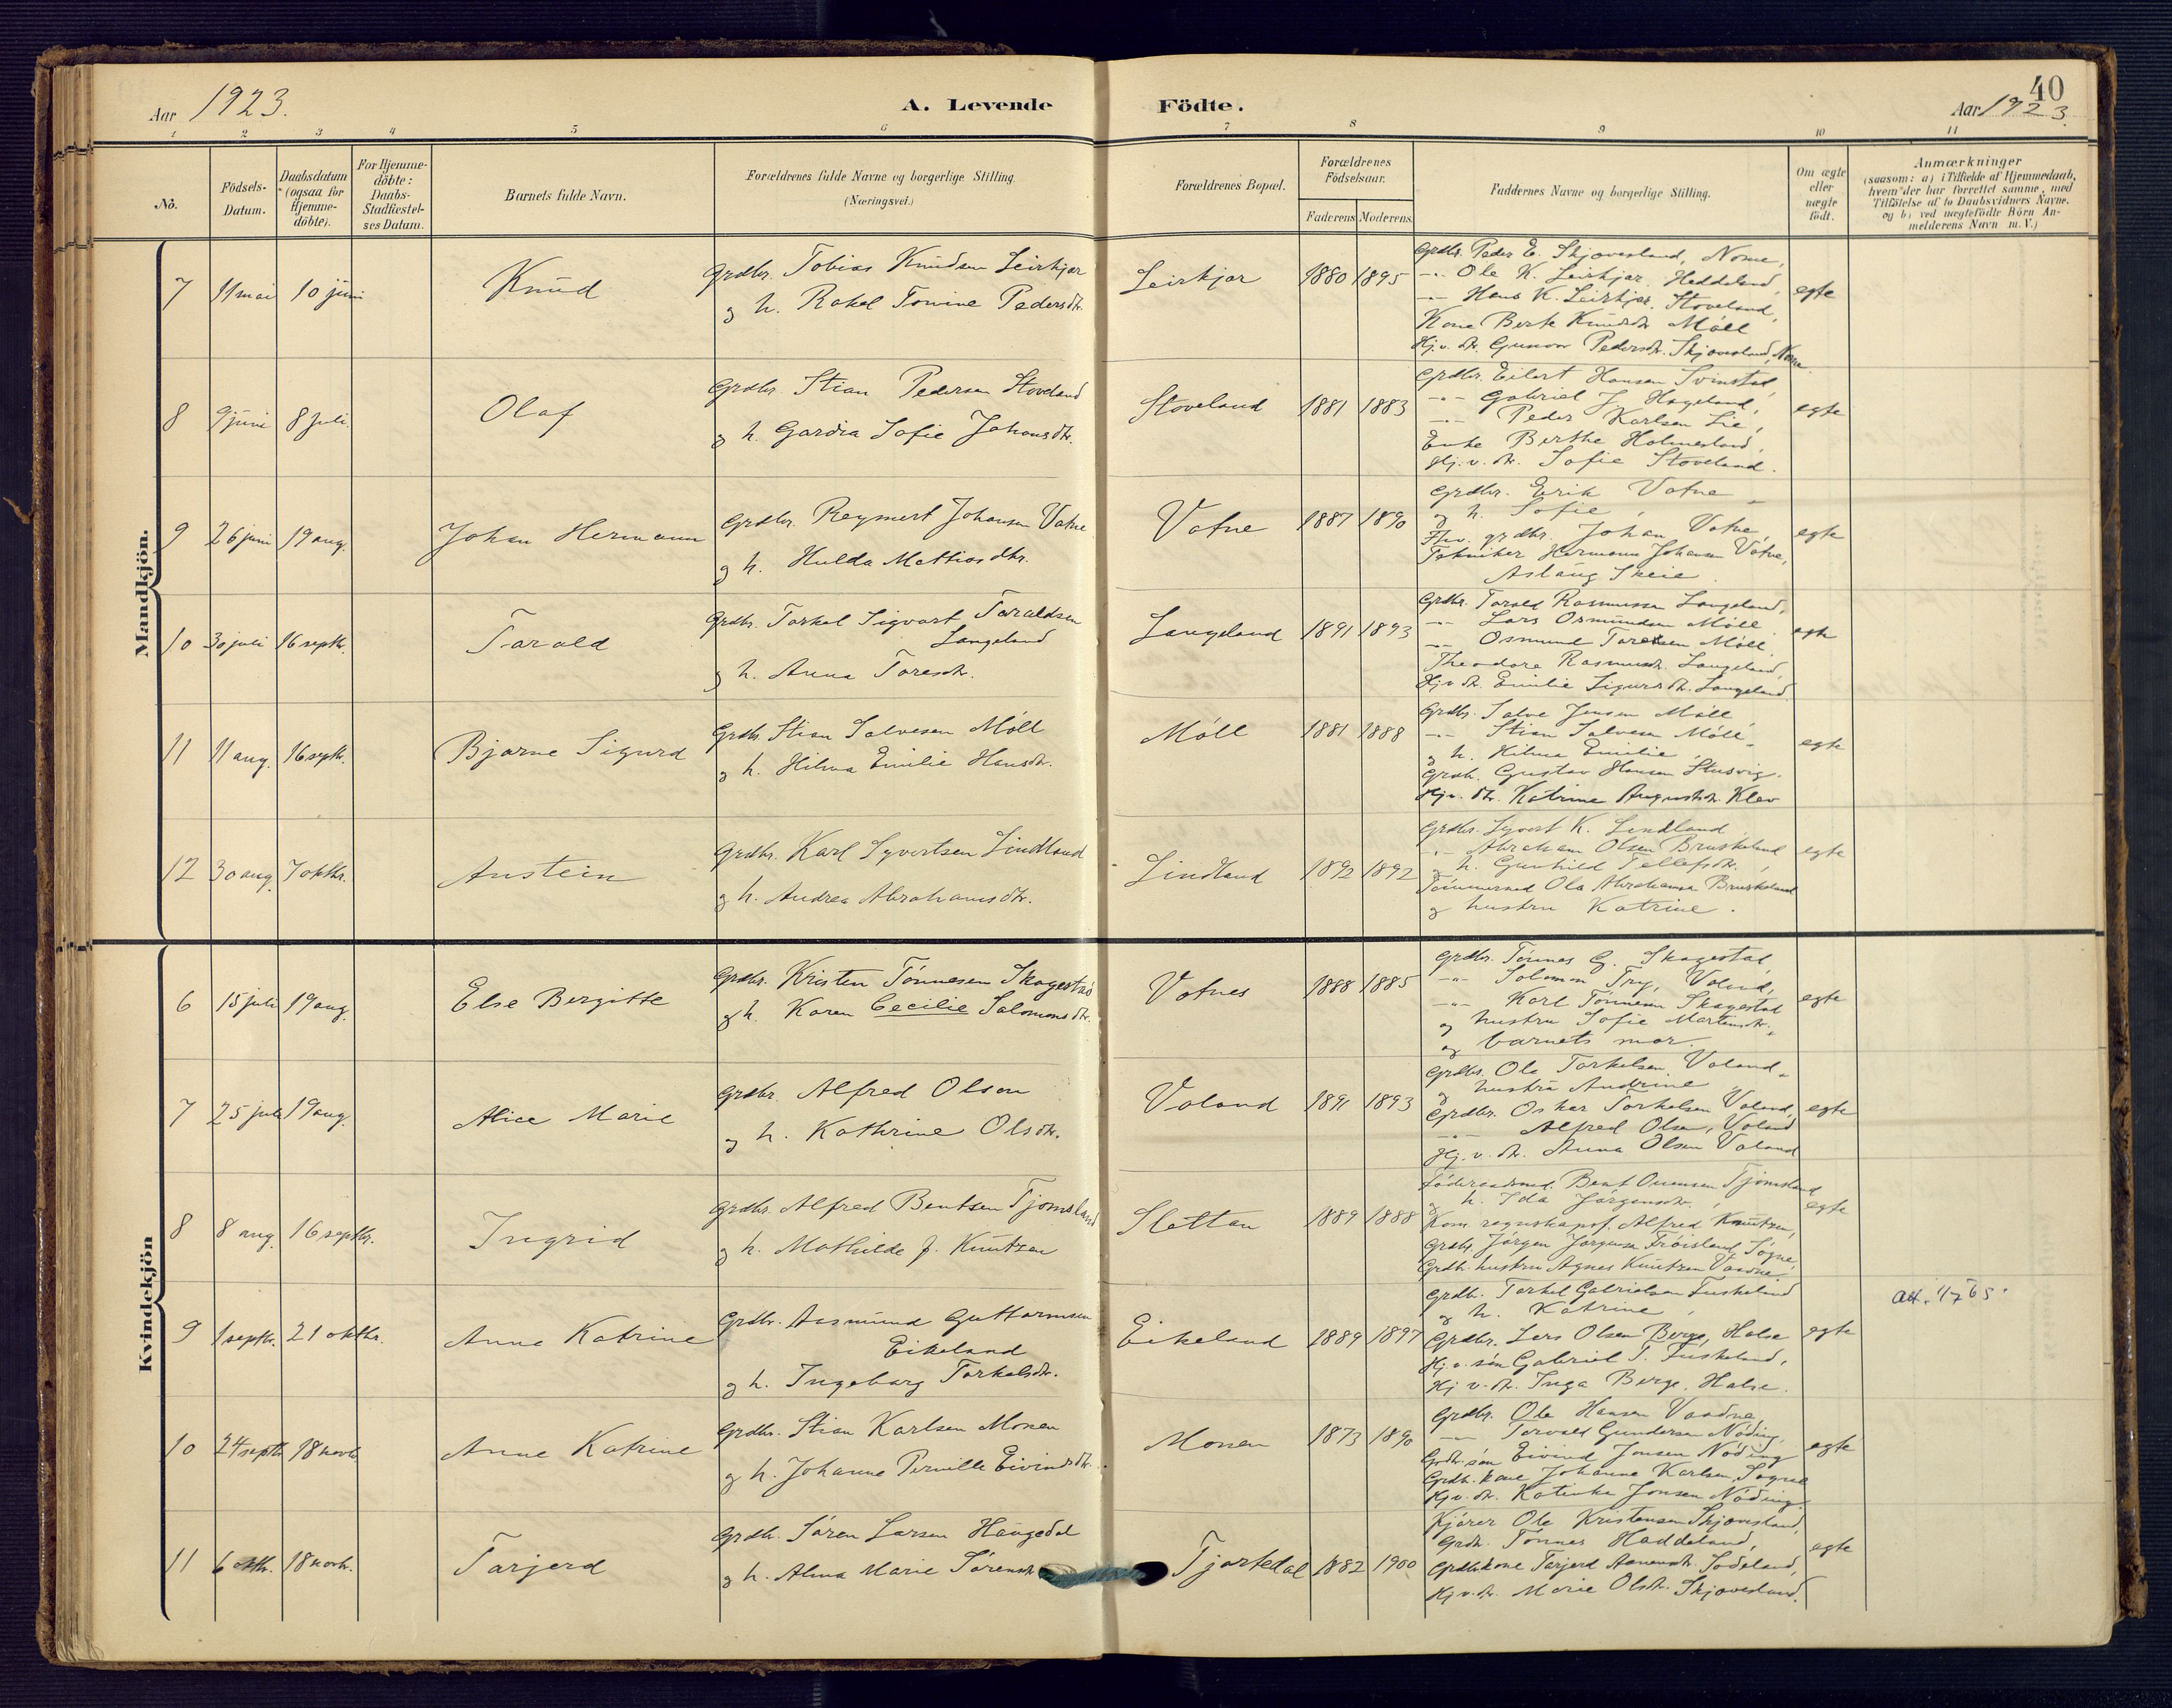 Aar 1923.
A. Levende Födte.
40
Aar 1923.
1 2 3 4 5 6 7 8 9 10 11
No.
Födsels-Datum.
Daabsdatum (ogsaa for Hjemme-döbte).
For Hjemme-döbte: Daabs-Stadfæstel-ses Datum.
Barnets fulde Navn.
Forældrenes fulde Navne og borgerlige Stilling. (Næringsvei.)
Forældrenes Bopæl.
Forældrenes Födselsaar.
Faderens Moderens
Faddernes Navne og borgerlige Stilling.
Om ægte eller uægte født.
Anmærkninger
(saasom: a) i Tilfælde af Hjemmedaab, hvem der har forrettet samme, med Tilföielse af to Daabsvidners Navne, og b) ved uægtefödte Börn An-melderens Navn m. V.)
Mandkjön.
7 11 mai 10 juni
Knud
Grdbr. Tobias Knudsen Leirkjær
og h. Rakel Tonine Pedersdtr.
Leirkjær 1880 1895
Grdbr. Peder E. Skjævesland, Nome,
-"- Ole K. Leirkjær, Heddeland,
-"- Hans K. Leirkjær, Stoveland,
Kone Berte Knudsdtr. Møll
Hj.v. dtr. Gunvor Pedersdtr. Skjævesland, Nome.
egte
8 9 juni 8 juli.
Olaf
Grdbr. Stian Pedersen Stoveland
og h. Gardia Sofie Johansdtr.
Stoveland 1881 1883
Grdbr. Eilert Hansen Svinstad,
-"- Gabriel J. Hageland,
-"- Peder Karlsen Lie,
Enke Berthe Holmesland,
Hj.v. dtr. Sofie Stoveland.
egte
9 26 juni 19 aug.
Johan Hermann
Grdbr. Reymert Johansen Vatne
og h. Hulda Mattiasdtr.
Vatne 1887 1890
Grdbr. Erik Vatne
og h. Sofie,
Fhv. grdbr. Johan Vatne,
Tekniker Hermann Johansen Vatne,
Aslaug Skeie.
egte
10 30 juli 16 septbr.
Tarald
Grdbr. Torkel Sigvart Taraldsen
Langeland
og h. Anna Toresdtr.
Langeland 1891 1893
Grdbr. Tarald Rasmussen Langeland,
-"- Lars Osmundsen Møll
-"- Osmund Toresen Møll.
Theodora Rasmusdtr. Langeland,
Hj.v dtr. Emilie Sigurdsdtr. Langeland
egte
11 11 aug. 16 septbr.
Bjarne Sigurd
Grdbr. Stian Salvesen Møll
og h. Hilma Emilie Hansdtr.
Møll 1881 1888
Grdbr. Salve Jensen Møll
-"- Stian Salvesen Møll
og h. Hilma Emilie,
Grdbr. Gustav Hansen Stusvig.
Hj.v. dtr. Katrine Augustsdtr. Klev
egte
12 30 aug. 7 oktbr.
Anstein
Grdbr. Karl Syvertsen Lindland
og h. Andrea Abrahamsdtr.
Lindland 1892 1892
Grdbr. Syvert K. Lindland
-"- Abraham Olsen Bruskeland
og h. Gunhild Tellefsdtr.,
Tømmermd. Ola Abrahamsen Bruskeland
og hustru Katrine.
egte
Kvindekjön
6 15 juli 19 aug.
Else Bergitte
Grdbr. Kristen Tønnesen Skagestad
og h. Karen Cecilie Salomonsdtr.
Vatnes 1888 1885
Grdbr. Tønnes G. Skagestad
-"- Salomon Try, Voland,
-"- Karl Tønnesen Skagestad
og hustru Sofie Martinsdtr.
og barnets mor.
egte
7 25 juli 19 aug.
Alice Marie
Grdbr. Alfred Olsen
og h. Kathrine Olsdtr.
Valand 1891 1893
Grdbr. Ole Torkelsen Valand
og hustru Andrine
Grdbr. Oskar Torkelsen Valand,
-"- Alfred Olsen, Valand
Hj.v. dtr. Anna Olsen Valand
egte
8 8 aug. 16 septbr.
Ingrid
Grdbr. Alfred Bentsen Tjomsland
og h. Mathilde J. Knutzen
Sletten 1889 1888
Føderaadsmd. Bent Ounsen Tjømsland
og h. Ida Jørgensdtr.,
Kom. regnskapsf. Alfred Knutzen,
Grdbr. Jørgen Jørgensen Frøisland, Søgne,
Grdbr. hustru Agnes Knutzen Vaadne.
egte
9 1 septbr. 21 oktbr.
Anna Katrine
Grdbr. Aasmund Guttormsen
Eikeland
og h. Ingeborg Torkelsdtr.
Eikeland 1889 1897
Grdbr. Torkel Gabrielsen Fuskeland
og h. Katrine,
Grdbr. Lars Olsen Berge, Halse
Hj.v. søn Gabriel T. Fuskeland,
Hj v. dtr. Inga Berge, Halse.
egte
Att. 1/7 65.
10 24 septbr. 18 novbr.
Anne Katrine
Grdbr. Stian Karlsen Monen
og h. Johanne Pernille Eivindsdtr.
Monen 1873 1890
Grdbr. Ole Hansen Vaadne,
-"- Torvald Gundersen Nøding,
Grdbr. søn Eivind Jonsen Nøding
Grdbr. kone Johanne Karlsen, Søgne
Hj.v. dtr. Katinka Jonsen Nøding.
egte
11 6 oktbr. 18 novbr.
Tarjerd
Grdbr. Søren Larsen Haugedal
og h. Alma Marie Sørensdtr
Tjortedal 1882 1900
Kjører Ole Kristensen Skjævesland,
Grdbr. Tønnes Haddeland,
Grdbr.kone Tarjerd Aanensdtr. Sodeland,
Hj.v. dtr. Marie Olsdtr. Skjævesland.
egte